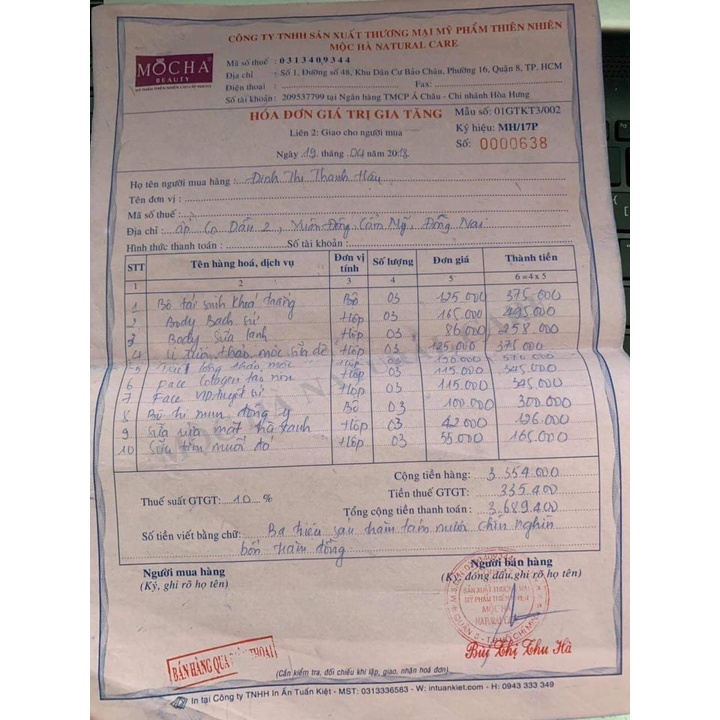 CÔNG TY TNHH SẢN XUẤT THƯƠNG MẠI MỸ PHẨM THIÊN NHIÊN
MỘC HÀ NATURAL CARE
MOCHA
BEAUTY
Mã số thuế : 0313409344
Địa chỉ : Số 1, Đường số 48, Khu Dân Cư Bảo Châu, Phường 16, Quận 8, TP. HCM
Điện thoại : Fax:
Số tài khoản : 209537799 tại Ngân hàng TMCP Á Châu - Chi nhánh Hòa Hưng
HÓA ĐƠN GIÁ TRỊ GIA TĂNG
Mẫu số: 01GTKT3/002
Liên 2: Giao cho người mua
Ký hiệu: MH/17P
Ngày 19 tháng 04 năm 2018
Số: 0000638
Họ tên người mua hàng : Đinh Thị Thanh Hậu
Tên đơn vị :
Mã số thuế :
Địa chỉ : ấp Cọ Dầu 2, Xuân Đông Cẩm Mỹ, Đồng Nai
Hình thức thanh toán : Số tài khoản :
STT Tên hàng hoá, dịch vụ Đơn vị tính Số lượng Đơn giá Thành tiền
1 2 3 4 5 6 = 4 x 5
1 Bộ tái sinh khoá trắng Bộ 03 125.000 375.000
2 Body Bạch sứ Hộp 03 165.000 495.000
3 Body sữa lạnh Hộp 03 86.000 258.000
4 thảo mộc sữa dê Hộp 03 125.000 375.000
5 lông thảo mộc 03 570.000
6 Face Collagen táo non Hộp 03 115.000 345.000
7 Face VIP huyết Hộp 03 115.000 345.000
8 Bộ trị mụn đông y Bộ 03 100.000 300.000
9 Sữa rửa mặt trà xanh Hộp 03 42.000 126.000
10 Sữa tắm muối đỏ Hộp 03 55.000 165.000
Cộng tiền hàng: 3.354.000
Thuế suất GTGT: 10 % Tiền thuế GTGT: 335.400
Tổng cộng tiền thanh toán: 3.689.400
Số tiền viết bằng chữ: Ba triệu sáu trăm tám mươi chín nghìn
bốn trăm đồng
Người mua hàng
(Ký, ghi rõ họ tên)
Người bán hàng
(Ký, đóng dấu, ghi rõ họ tên)
SẢN XUẤT THƯƠNG MẠI
MỸ PHẨM THIÊN NHIÊN
MỘC HÀ
NATURAL CARE
QUẬN 8 - TP HỒ CHÍ MINH
Bùi Thị Thu Hà
BÁN HÀNG QUA ĐIỆN THOẠI
(Cần kiểm tra, đối chiếu khi lập, giao, nhận hoá đơn)
In tại Công ty TNHH In Ấn Tuấn Kiệt - MST: 0313336583 - W: intuankiet.com - H: 0943 333 349